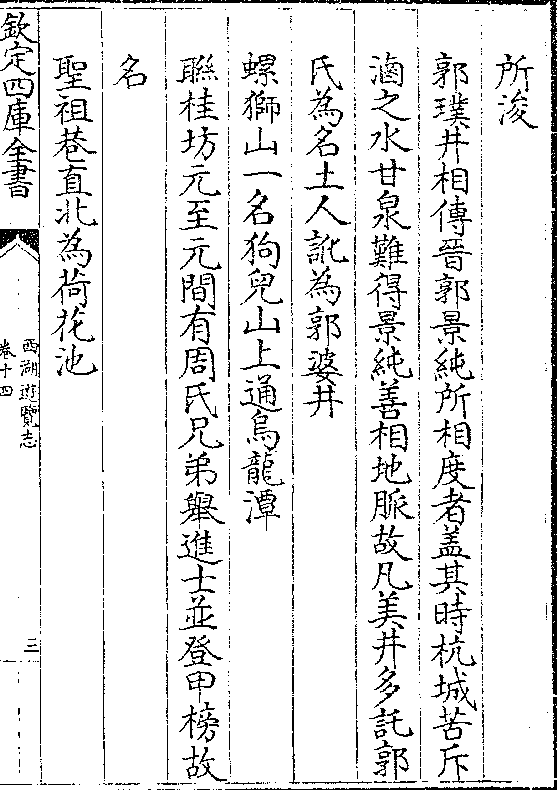 所浚
郭璞井相傳晉郭景純所相度者盖其時杭城苦斥
滷之水甘泉難得景純善相地脈故凡美井多託郭
氏為名土人訛為郭婆井
螺獅山一名狗兒山上通烏龍潭
聮桂坊元至元間有周氏兄弟舉進士並登甲榜故
名
聖祖巷直北為荷花池
欽定四庫全書
西湖遊覽志
卷十四
三